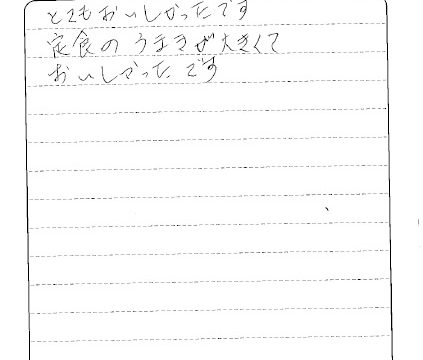 とてもおいしかったです
定食のうまきが大きくて
おいしかったです